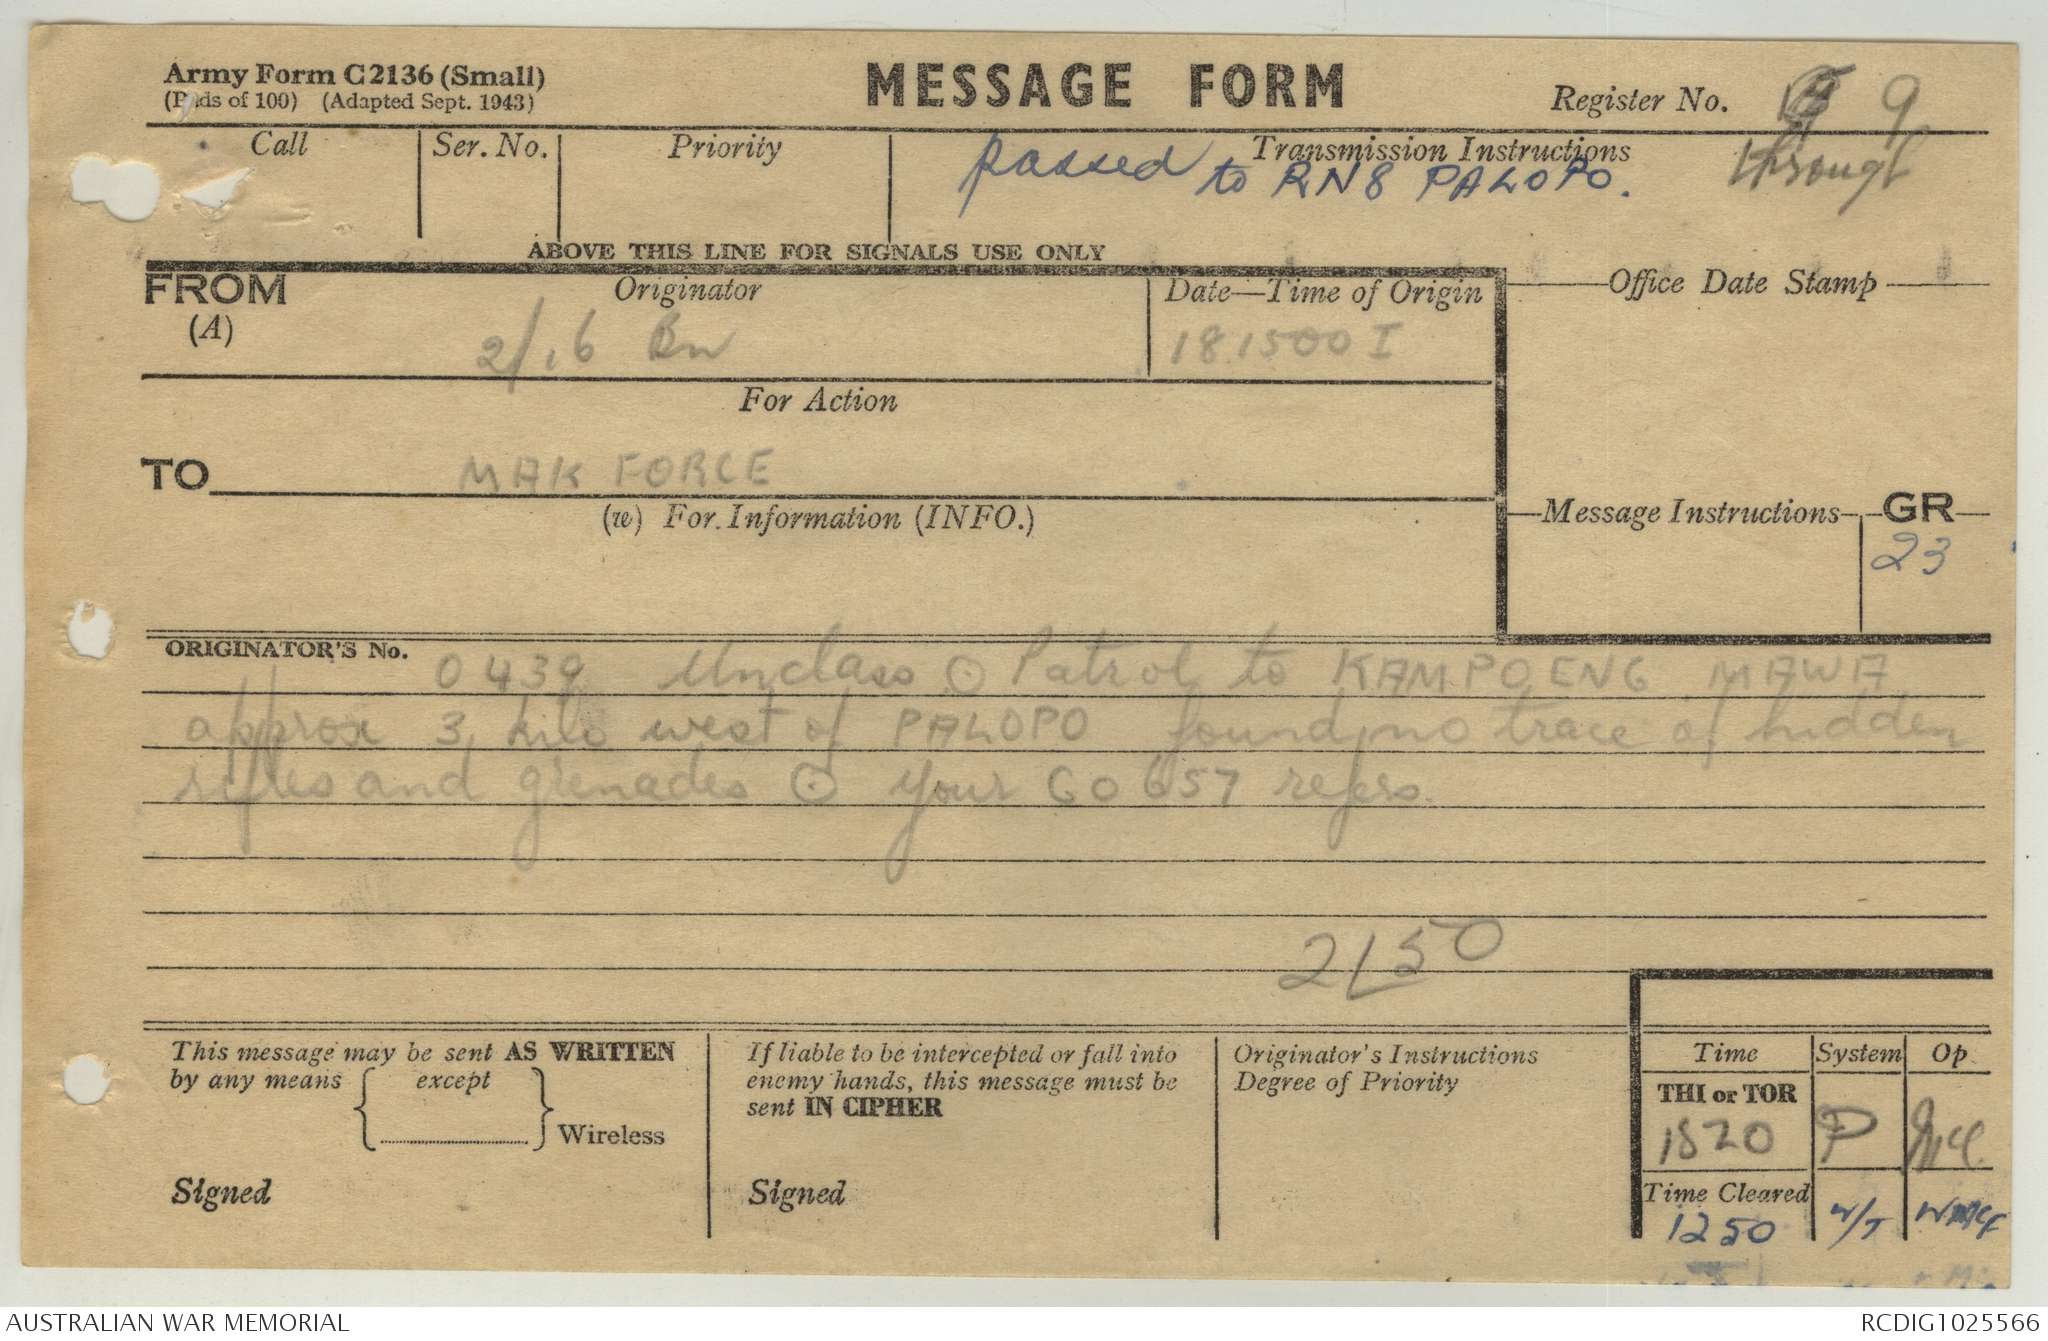 Army Form C2136 (Small)
(Pads of 100) (Adapted Sept. 1943)
MESSAGE FORM
Register No. 9
Call
Ser. No.
Priority
Transmission Instructions
passed to RN8 PALOPO.
through
ABOVE THIS LINE FOR SIGNALS USE ONLY
FROM
(A)
Originator
2/16 Bn
Date—Time of Origin
181500 I
Office Date Stamp
For Action
TO
MAK FORCE
(w) For Information (INFO.)
Message Instructions
GR
23
ORIGINATOR'S No.
0439 Unclass ⊙ Patrol to KAMPOENG MAWA
approx 3 kilo west of PALOPO found no trace of hidden
rifles and grenades ⊙ your GO 657 refers.
2150
This message may be sent AS WRITTEN
by any means except
Wireless
Signed
If liable to be intercepted or fall into
enemy hands, this message must be
sent IN CIPHER
Signed
Originator's Instructions
Degree of Priority
Time System Op
THI or TOR
1820 P
Time Cleared
1250 W/T
AUSTRALIAN WAR MEMORIAL
RCDIG1025566